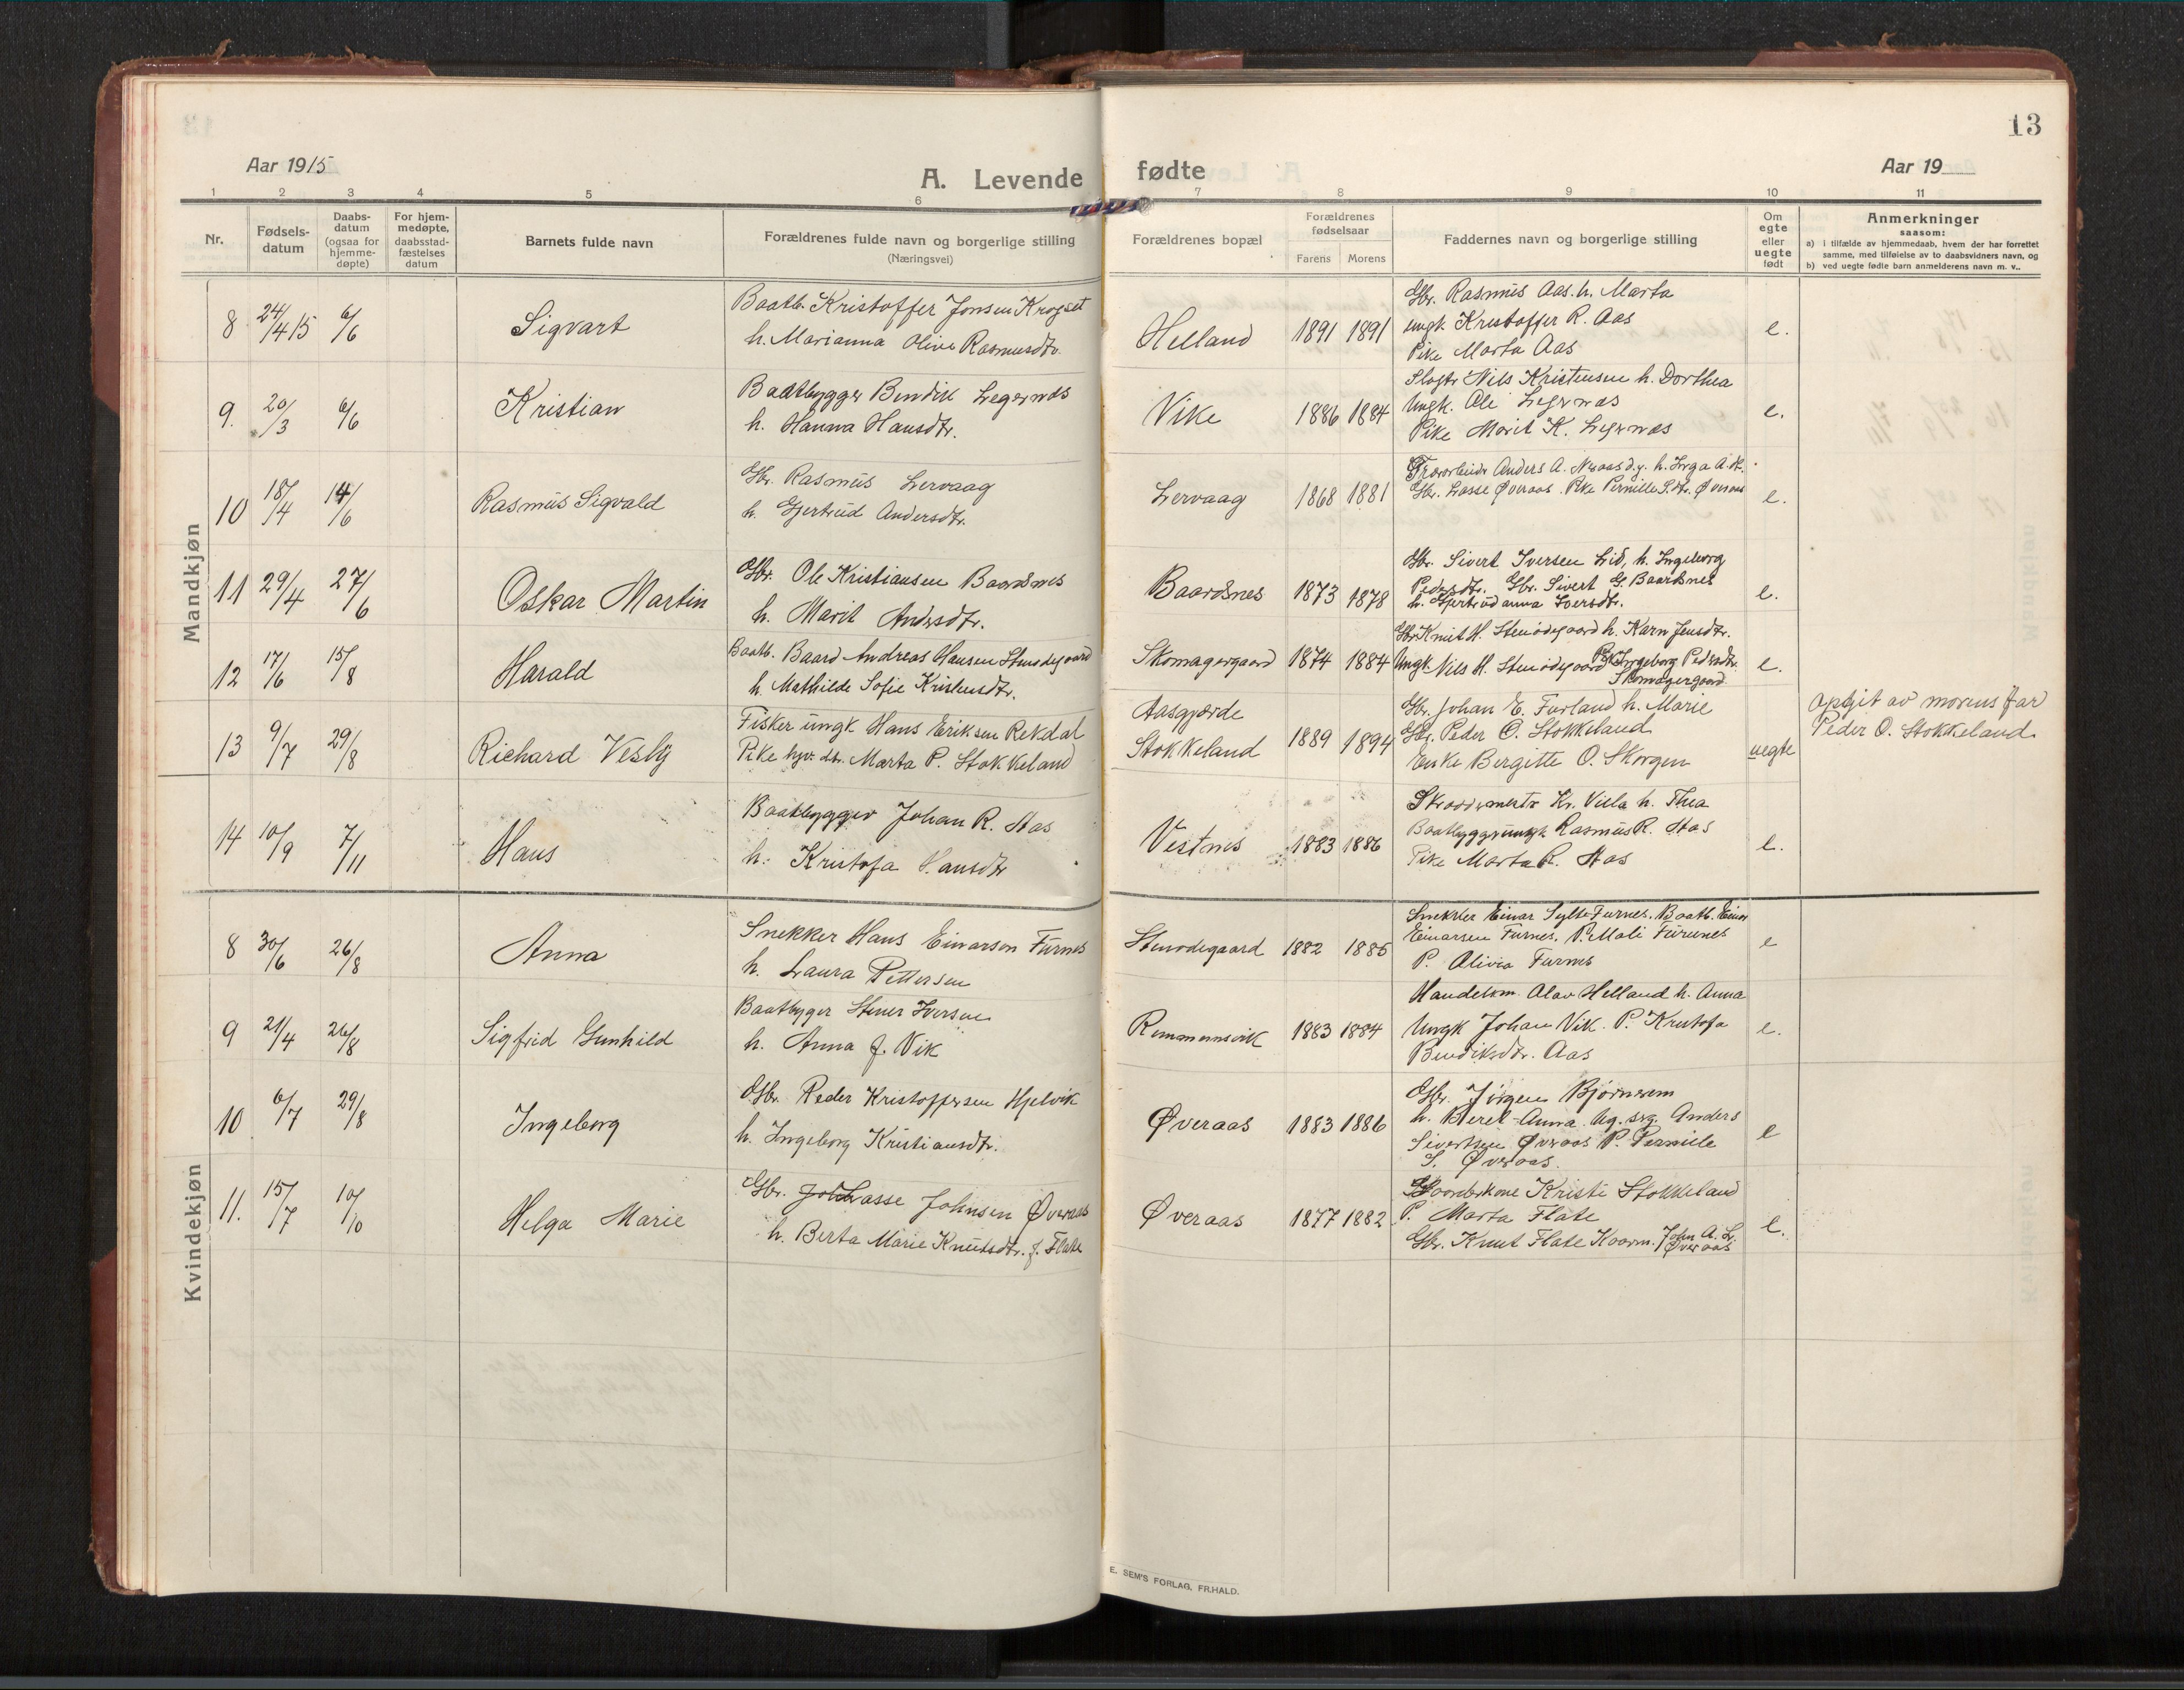 13
Aar 1915
A. Levende fødte
Aar 19
1 2 3 4 5 6 7 8 9 10 11
Nr.
Fødsels-
datum
Daabs-
datum
(ogsaa for
hjemme-
døpte)
For hjem-
medøpte,
daabsstad-
fæstelses
datum
Barnets fulde navn
Forældrenes fulde navn og borgerlige stilling
(Næringsvei)
Forældrenes bopæl
Forældrenes
fødselsaar
Farens Morens
Faddernes navn og borgerlige stilling
Om
egte
eller
uegte
født
Anmerkninger
saasom:
a) i tilfælde av hjemmedaab, hvem der har forrettet
samme, med tilføielse av to daabsvidners navn, og
b) ved uegte fødte barn anmelderens navn m. v..
Mandkjøn
8 24/4 15 6/6 Sigvart
Baatb. Kristoffer Jonsen Krogset
h. Marianna Olive Rasmusdtr.
Helland 1891 1891
Gbr. Rasmus Aas. h. Marta
Ungk Kristoffer R. Aas
Pike Marta Aas
e.
9. 20/3 6/6 Kristian
Baatbygger Bendik Legernes
h. Hanna Hansdtr.
Vike 1886 1884
Slagtr Nils Kristensen h. Dorthea
Ungk. Ole Legernes
Pike Marit K. Legernes
e.
10 18/4 14/6 Rasmus Sigvald
Gbr. Rasmus Lervaag
h. Gjertrud Andersdtr.
Lervaag 1868 1881
Anders A. Neraas d.y. h. Inga A.dtr.
Gbr. Lasse Øveraas. Pike Pernille S.dtr. Øveraas
e.
11 29/4 27/6 Oskar Martin
Gbr. Ole Kristiansen Baardsnes
h. Marit Andersdtr.
Baardsnes 1873 1878
Gbr. Sivert Iversen Lid, h. Ingeborg
Pedersdtr. Gbr. Sivert G. Baardsnes
h. Gjertrud anna Iversdtr.
e.
12 17/6 15/8 Harald
Baatb. Baard Andreas Hansen Stenødegaard
h. Mathilde Sofie Kristensdtr.
Skomagergaard 1874 1884
Gbr Knut H. Stenødegaard h. Karn Jensdtr.
Ungk. Nils H. Stenødegaard Pike Ingeborg Pedersdtr.
Skomagergaard
e.
13 9/7 29/8 Richard Vesly
Fisker ungk Hans Eriksen Rekdal
Pike hjv. dtr. Marta P. Stokkeland
Aasgjærde
Stokkeland 1889 1894
Gbr. Johan E. Furland h. Marie
Gbr. Peder O. Stokkeland
Enke Bergitte O. Skorgen
uegte
Opgit av morens far
Peder O. Stokkeland.
14 10/9 7/11 Hans
Baatbygger Johan R. Aas
h. Kristofa Hansdtr
Vestnes 1883 1886
Skræddermestr Kr. Villa h. Thea
Baatbygger ungk Rasmus R. Aas
Pike Marta R. Aas
e.
Kvindekjøn
8 30/6 26/8 Anna
Snekker Hans Einarson Furnes
h. Laura Pettersen
Stenødegaard 1882 1885
Snekker Einar Sylte Furnes. Baatb. Einar
Einarsen Furnes. P. Mali Furunes
P. Olivia Furnes
e
9 21/4 26/8 Sigfrid Gunhild
Baatbyger Stener Iversen
h. Anna J. Vik
Remmemsvik 1883 1884
Handelsm. Olav Helland h. Anna
Ungk Johan Vik. P. Kristofa
Bendiksdtr. Aas
e.
10 6/7 29/8 Ingeborg
Gbr. Peder Kristoffersen Hjelvik
h. Ingeborg Kristiansdtr.
Øveraas 1883 1886
Gbr. Jørgen Bjørnerem
h. Beret-Anna. Anders
Sivertsen Øveraas P. Pernille
S. Øveraas.
e
11. 15/7 10/10 Helga Marie
Gbr. Lasse Johnsen Øveraas
h. Berta Marie Knutsdtr. f. Flate
Øveraas 1877 1882
Gaardskone Kristi Stokkeland
P. Marta Flate
Gbr. Knut Flate Kaarm. John A. L.
Øveraas
e.
E. SEM'S FORLAG, FR.HALD.